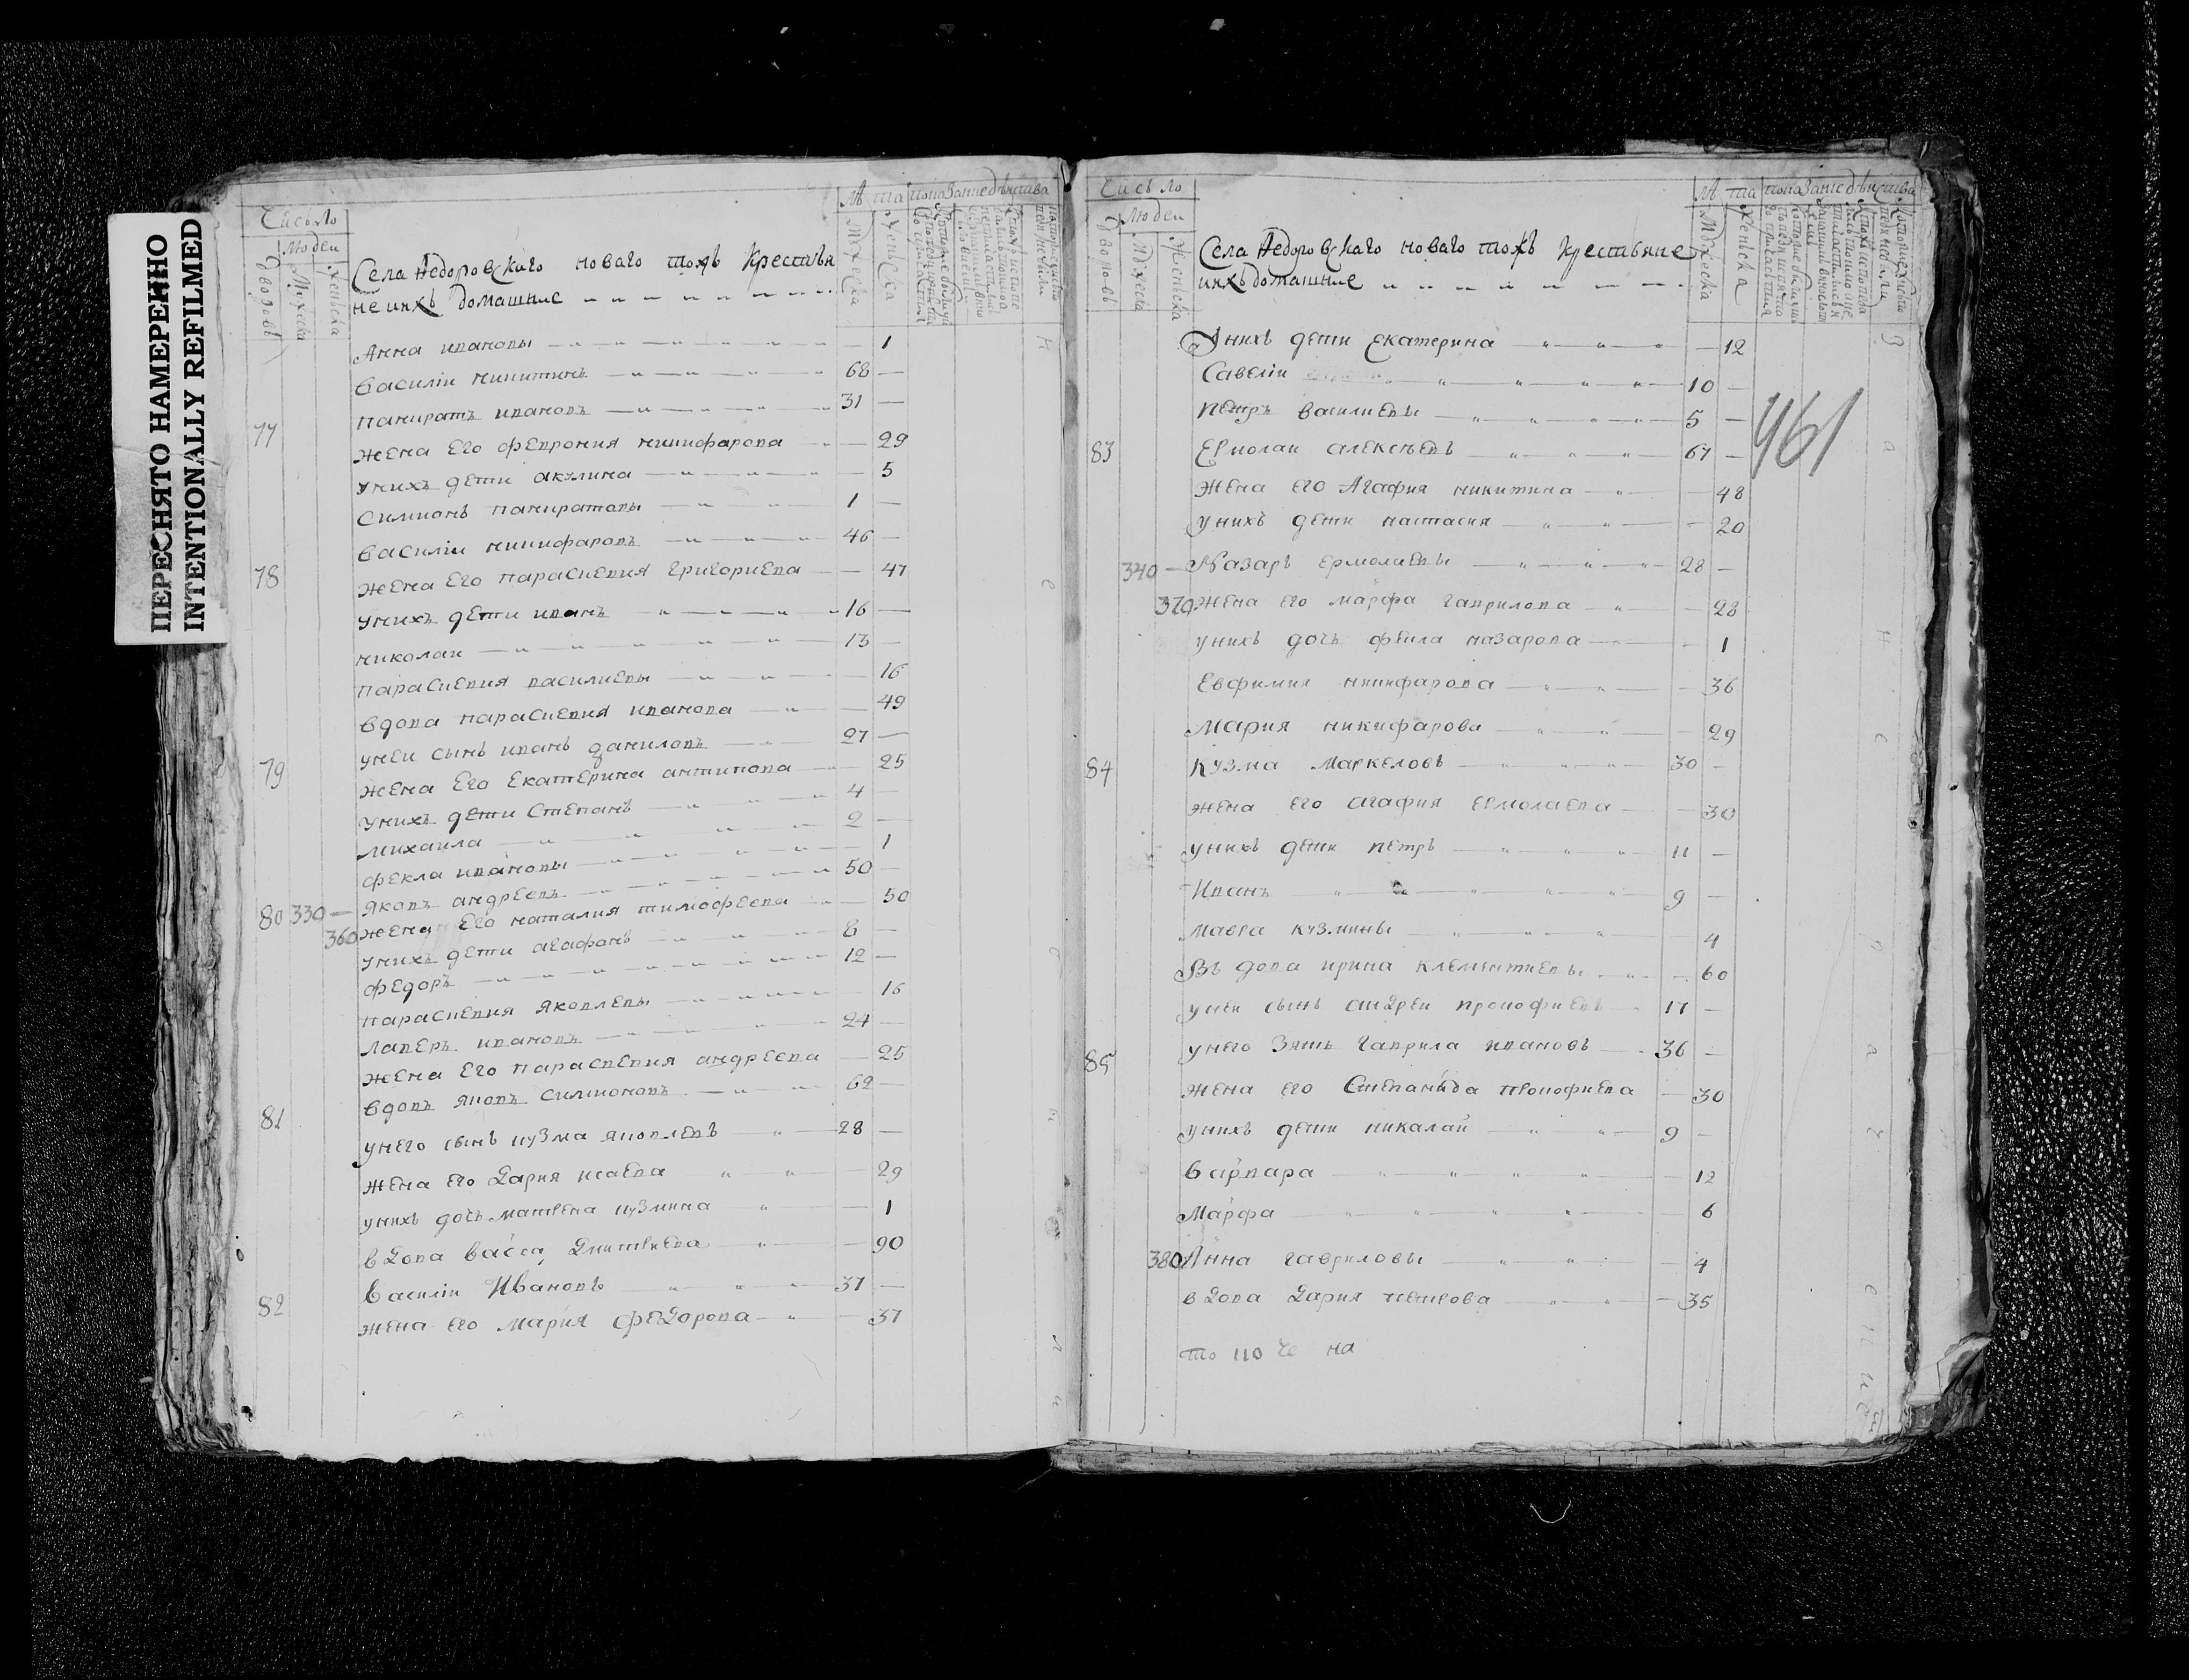 ПЕРЕСНЯТО НАМЕРЕННО
INTENTIONALLY REFILMED
Число
Людей
Дворовъ
Мужеска
Женска
Села Ѳедоровскаго новаго тожъ крестья
не ихъ домашние
Лѣта
Показание дѣйства
Мужеска
Женска
Анна ивановы 1
Василіи никитинъ 68
77 панкратъ ивановъ 31
жена его феврония никифарова 29
у нихъ дети акулина 5
Симионъ панкратовы 1
78 Василіи никифаровъ 46
жена его параскевия григориева 47
у нихъ дети иванъ 16
николаи 13
параскевия василиевы 16
вдова параскевия иванова 49
79 у неи сынъ иванъ даниловъ 27
жена его екатерина антипова 25
у нихъ дети степанъ 4
михаила 2
фекла ивановы 1
80 339 яковъ андреевъ 50
360 жена его наталия тимофеева 50
у нихъ дети агафонъ 8
федоръ 12
параскевия яковлевы 16
лаверъ ивановъ 24
жена его параскевия андреева 25
81 вдовъ яковъ симионовъ 62
у него сынъ кузма яковлевъ 28
жена его дария исаева 29
у нихъ дочь матвена кузмина 1
вдова васса дмитвиева 90
82 Василіи Ивановъ 37
жена его мария федорова 37
Число
Людеи
Дворовъ
Мужеска
Женска
Села Ѳедоровскаго новаго тожъ крестьяне
ихъ домашние
Лѣта
Показание дѣйства
Мужеска
Женска
461
У нихъ дети екатерина 12
Савеліи 10
петръ василиевы 5
83 Ермолаи алексѣевъ 67
жена его Агафия никитина 48
у нихъ дети настасия 20
340 Назаръ ермолаевы 28
370 жена его марфа гаврилова 28
у нихъ дочь фекла назарова 1
Евфимия никифарова 36
мария никифарова 29
84 кузма маркеловъ 30
жена его агафия ермолаева 30
у нихъ дети петръ 11
Иванъ 9
мавра кузмины 4
Въдова ирина клементиевы 60
у неи сынъ андреи прокофиевъ 17
85 у него зять гаврила ивановъ 36
жена его степанида прокофиева 30
у нихъ дети николаи 9
варвара 12
марфа 6
380 Анна гавриловы 4
вдова дария петрова 35